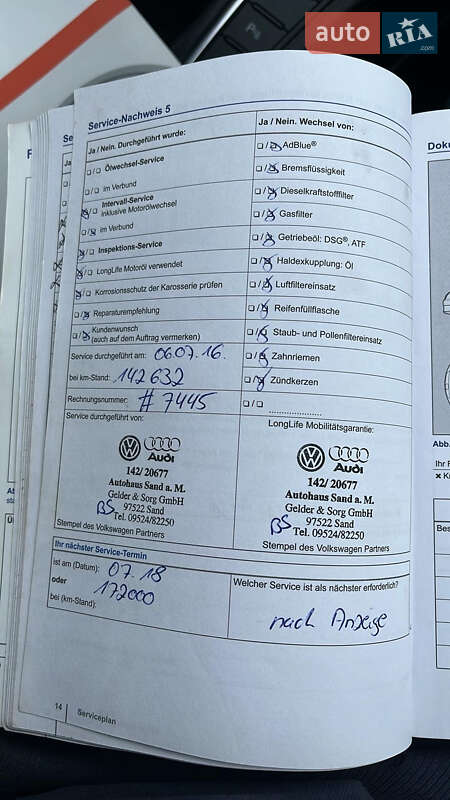 auto RIA .com
P
Service-Nachweis 5
Ja / Nein. Durchgeführt wurde:
Ölwechsel-Service
im Verbund
Intervall-Service
inklusive Motorölwechsel
im Verbund
Inspektions-Service
LongLife Motoröl verwendet
Korrosionsschutz der Karosserie prüfen
Reparaturempfehlung
Kundenwunsch
(auch auf dem Auftrag vermerken)
Service durchgeführt am: 06.07.16.
bei km-Stand: 142632
Rechnungsnummer: # 7445
Service durchgeführt von:
Audi
142/20677
Autohaus Sand a. M.
Gelder & Sorg GmbH
97522 Sand
Tel. 09524/82250
BS
Stempel des Volkswagen Partners
Ja / Nein. Wechsel von:
AdBlue®
Bremsflüssigkeit
Dieselkraftstofffilter
Gasfilter
Getriebeöl: DSG®, ATF
Haldexkupplung: Öl
Luftfiltereinsatz
Reifenfüllflasche
Staub- und Pollenfiltereinsatz
Zahnriemen
Zündkerzen
LongLife Mobilitätsgarantie:
Audi
142/20677
Autohaus Sand a. M.
Gelder & Sorg GmbH
97522 Sand
Tel. 09524/82250
BS
Stempel des Volkswagen Partners
Ihr nächster Service-Termin
ist am (Datum): 07.18
oder
bei (km-Stand): 172000
Welcher Service ist als nächster erforderlich?
nach Anzeige
14
Serviceplan
Doku
Abb.
Ihr F
Bes